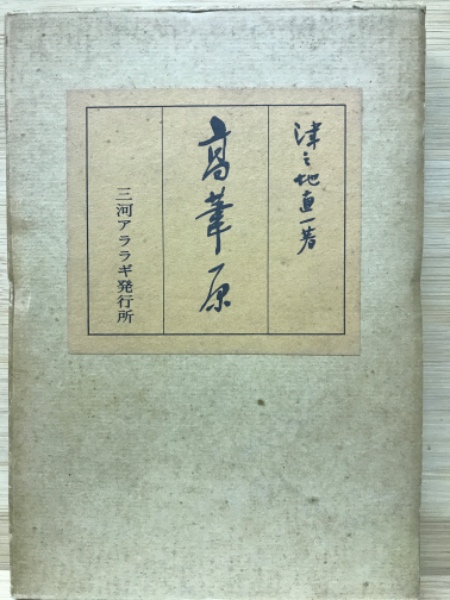 津之地直一著
高葦原
三河アララギ発行所